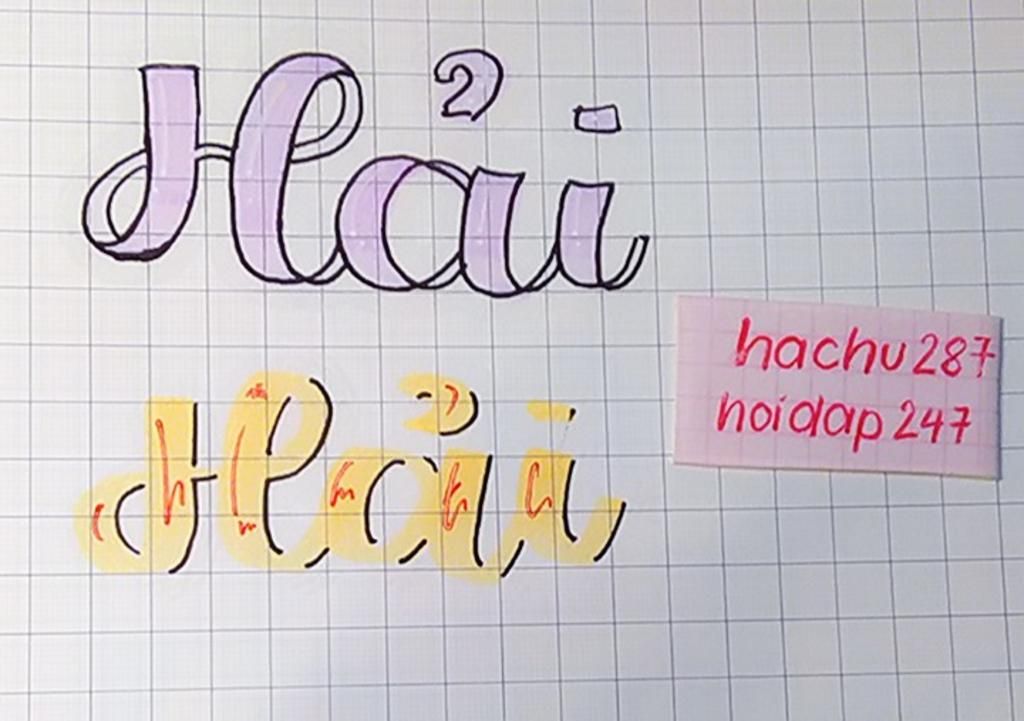 Hải
Hải
hachu287
noidap247